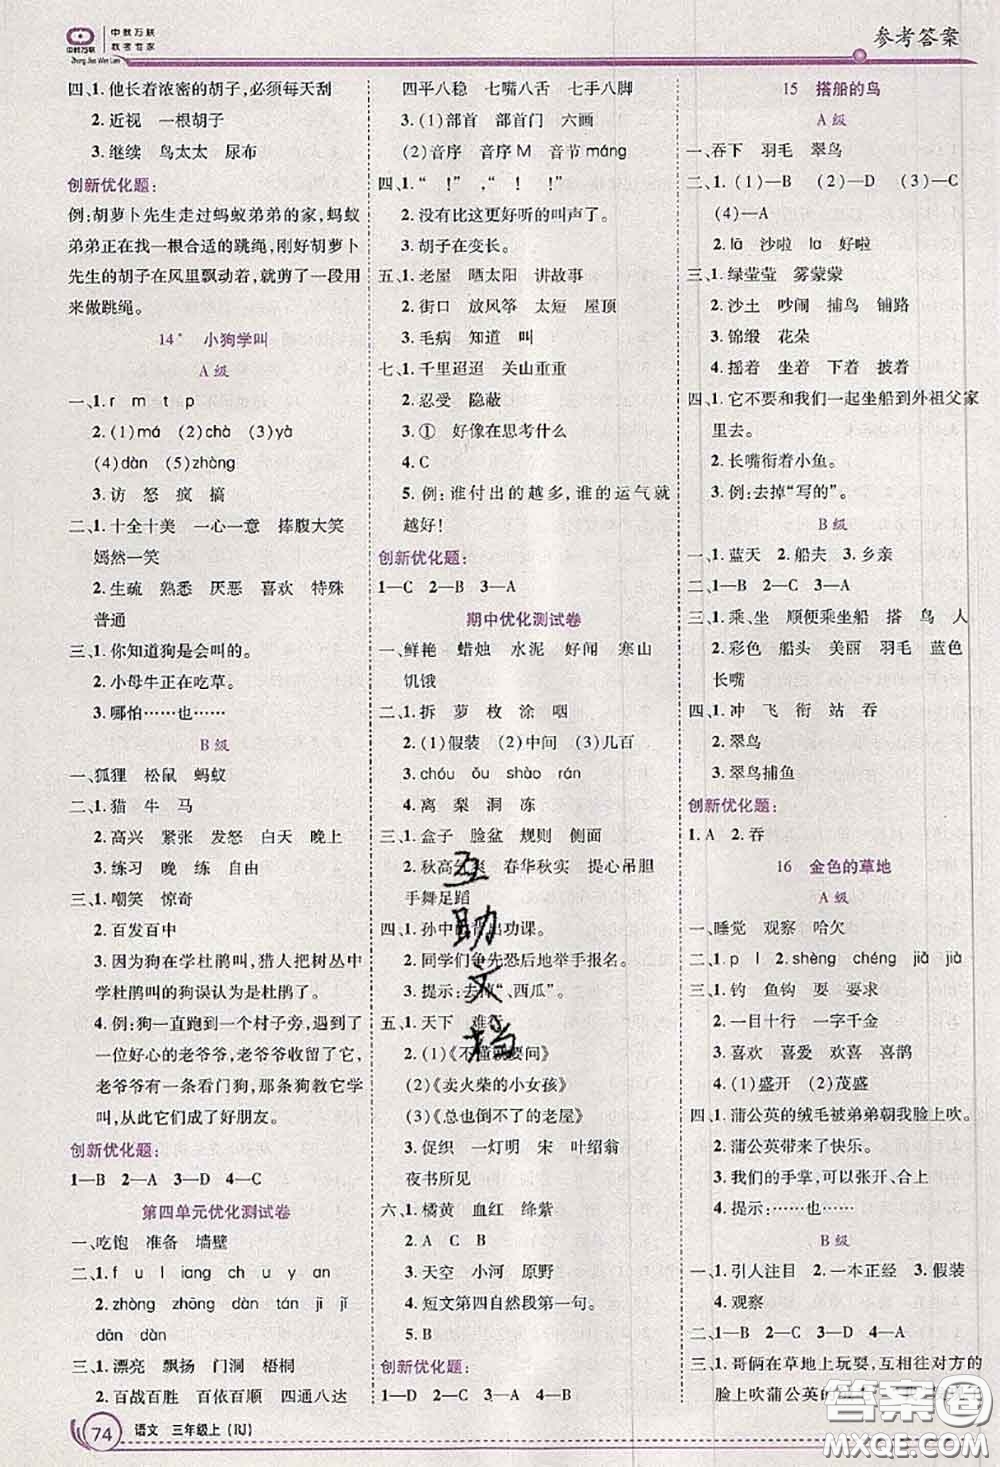 中教万联
中教万联
教考专家
Zhong Jiao Wan Lian
参考答案
四、1. 他长着浓密的胡子,必须每天刮
2. 近视 一根胡子
3. 继续 鸟太太 尿布
创新优化题:
例:胡萝卜先生走过蚂蚁弟弟的家,蚂蚁
弟弟正在找一根合适的跳绳,刚好胡萝卜
先生的胡子在风里飘动着,就剪了一段用
来做跳绳。
14* 小狗学叫
A 级
一、1. r m t p
2. (1)má (2)chà (3)yà
(4)dàn (5)zhòng
3. 访 怒 疯 搞
二、1. 十全十美 一心一意 捧腹大笑
嫣然一笑
2. 生疏 熟悉 厌恶 喜欢 特殊
普通
三、1. 你知道狗是会叫的。
2. 小母牛正在吃草。
3. 哪怕……也……
B 级
一、狐狸 松鼠 蚂蚁
二、1. 猫 牛 马
2. 高兴 紧张 发怒 白天 晚上
3. 练习 晚 练 自由
三、1. 嘲笑 惊奇
2. 百发百中
3. 因为狗在学杜鹃叫,猎人把树丛中
学杜鹃叫的狗误认为是杜鹃了。
4. 例:狗一直跑到一个村子旁,遇到了
一位好心的老爷爷,老爷爷收留了它。
老爷爷有一条看门狗,就教小狗学汪汪
叫,从此它们成了好朋友。
创新优化题:
1—B 2—A 3—D 4—C
第四单元优化测试卷
一、吃饱 准备 墙壁
二、1. f u l iang ch u y an
2. zhòng zhōng dàn tán jì jǐ
dān dàn
三、1. 漂亮 飘扬 门洞 梧桐
2. 百战百胜 百依百顺 四通八达
四平八稳 七嘴八舌 七手八脚
3. (1)部首 部首门 六画
(2)音序 音序M 音节máng
四、1. “ !” ,“ !”
2. 没有比这更好听的叫声了。
3. 胡子在变长。
五、1. 老屋 晒太阳 讲故事
2. 街口 放风筝 太短 屋顶
3. 毛病 知道 叫
七、1. 千里迢迢 关山重重
2. 忍受 隐蔽
3. ① 好像在思考什么
4. C
5. 例:谁付出的越多,谁的运气就
越好!
创新优化题:
1—C 2—B 3—A
期中优化测试卷
一、鲜艳 蜡烛 水泥 好闻 寒山
饥饿
二、1. 拆 萝 枚 涂 咽
2. (1)假装 (2)中间 (3)几百
3. chóu ǒu shào rán
4. 离 梨 洞 冻
三、1. 盒子 脸盆 规则 侧面
2. 秋高气爽 春华秋实 提心吊胆
手舞足蹈
四、1. 孙中山背出功课。
2. 同学们争先恐后地举手报名。
3. 提示:去掉“、西瓜”。
五、1. 天下 难
2. (1)《不懂就要问》
(2)《卖火柴的小女孩》
(3)《总也倒不了的老屋》
3. 促织 一灯明 宋 叶绍翁
夜书所见
六、1. 橘黄 血红 绛紫
2. A C B
3. 天空 小河 原野
4. 短文第四自然段第一句。
5. B
创新优化题:
1—D 2—C 3—B 4—A
15 搭船的鸟
A 级
一、吞下 羽毛 翠鸟
二、1. (1)—B (2)—D (3)—C
(4)—A
2. lā 沙啦 la 好啦
三、1. 绿莹莹 雾蒙蒙
2. 沙土 吵闹 捕鸟 铺路
3. 锦缎 花朵
4. 摇着 坐着 下着 披着
四、1. 它不要和我们一起坐船到外祖父家
里去。
2. 长嘴衔着小鱼。
3. 例:去掉“写的”。
B 级
一、1. 蓝天 2. 船夫 3. 乡亲
二、1—B 2—C 3—A
三、1. 乘、坐 顺便乘坐船 搭 鸟 人
2. 彩色 船头 美丽 羽毛 蓝色
长嘴
四、1. 冲 飞 衔 站 吞
2. 翠鸟
3. 翠鸟捕鱼
创新优化题:
1. A 2. 吞
16 金色的草地
A 级
一、睡觉 观察 哈欠
二、1. p l 2. shèng chéng jiǎ jià
三、1. 钓 鱼钩 耍 要求
2. 一目十行 一字千金
3. 喜欢 喜爱 欢喜 喜鹊
4. (1)盛开 (2)茂盛
四、1. 蒲公英的绒毛被弟弟朝我脸上吹。
2. 蒲公英带来了快乐。
3. 我们的手掌,可以张开、合上。
4. 提示:……也……
B 级
一、1. 引人注目 2. 一本正经 3. 假装
4. 观察
二、1—B 2—C 3—D 4—A
三、1. 哥俩在草地上玩耍,互相往对方的
脸上吹蒲公英的绒毛
互助文档
答案圈
MXQE.COM
74
语文 三年级上(RJ)